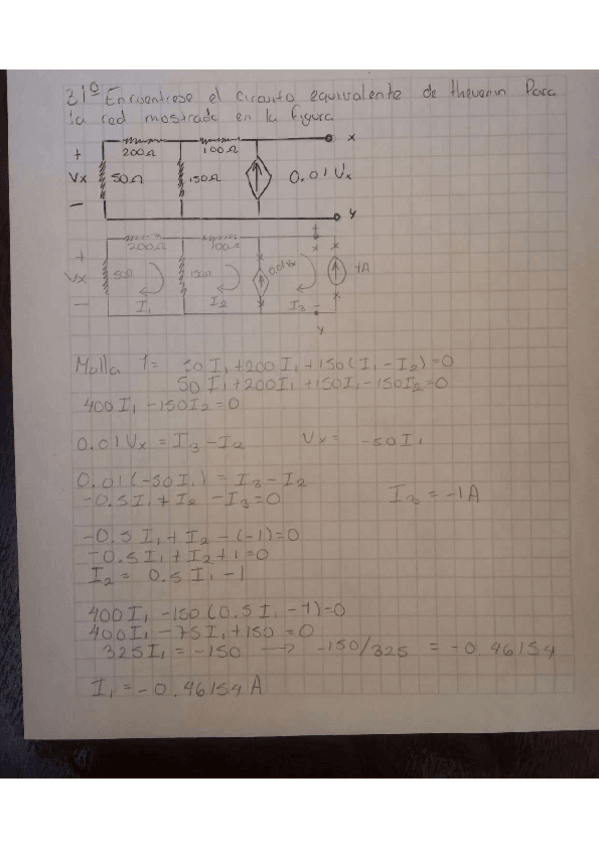 31º Encuentrese el circuito equivalente de thevenin Para
la red mostrada en la figura
200Ω 100Ω x
+
Vx 50Ω 150Ω 0.01 Vx
−
y
+
200Ω 100Ω x
+
Vx 50Ω 150Ω 0.01Vx 1A
−
I₁ I₂ I₃ −
y
Malla 1= 50 I₁+200 I₁+150(I₁-I₂)=0
50 I₁+200I₁+150I₁-150I₂=0
400I₁-150I₂=0
0.01Vx = I₃-I₂ Vx= -50I₁
0.01(-50I₁) = I₃-I₂
-0.5I₁+I₂-I₃=0 I₃=-1A
-0.5I₁+I₂-(-1)=0
-0.5I₁+I₂+1=0
I₂= 0.5I₁-1
400I₁-150(0.5I₁-1)=0
400I₁-75I₁+150=0
325I₁=-150 → -150/325 = -0.46154
I₁=-0.46154 A